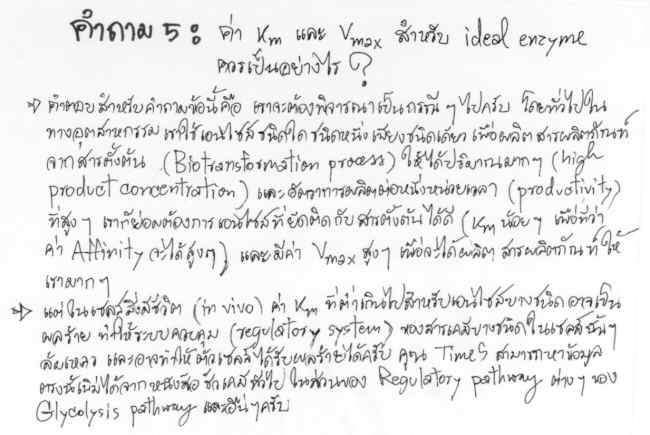 คำถาม 5 : ค่า Km และ Vmax สำหรับ ideal enzyme
ควรเป็นอย่างไร ?
⇒ คำตอบสำหรับคำถามข้อนี้คือ เราจะต้องพิจารณาเป็นกรณี ๆ ไปครับ โดยทั่วไปใน
ทางอุตสาหกรรม เราใช้เอนไซม์ชนิดใดชนิดหนึ่งเพียงชนิดเดียว เพื่อผลิตสารผลิตภัณฑ์
จากสารตั้งต้น (Biotransformation process) ให้ได้ปริมาณมากๆ (high
product concentration) และอัตราการผลิตต่อหนึ่งหน่วยเวลา (productivity)
ที่สูงๆ เราก็ย่อมต้องการเอนไซม์ที่ยึดติดกับสารตั้งต้นได้ดี (Km น้อยๆ เพื่อที่ว่า
ค่า Affinity จะได้สูงๆ) และมีค่า Vmax สูงๆ เพื่อจะได้ผลิตสารผลิตภัณฑ์ให้
เรามากๆ
⇒ แต่ในเซลล์สิ่งมีชีวิต (in vivo) ค่า Km ที่ต่ำเกินไปสำหรับเอนไซม์บางชนิด อาจเป็น
ผลร้าย ทำให้ระบบควบคุม (regulatory system) ของสารเคมีบางชนิดในเซลล์นั้นๆ
ล้มเหลว และอาจทำให้ตัวเซลล์ได้รับผลร้ายได้ครับ คุณ TimeS สามารถหาข้อมูล
ตรงนี้เพิ่มได้จากหนังสือชีวเคมีทั่วไป ในส่วนของ Regulatory pathway ต่างๆ ของ
Glycolysis pathway และอื่นๆครับ